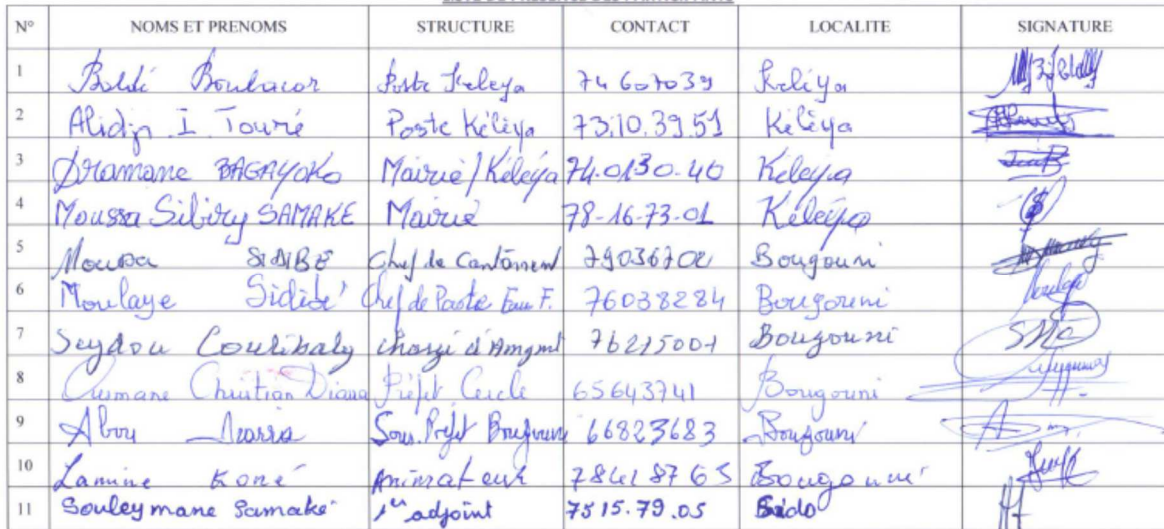 N° NOMS ET PRENOMS STRUCTURE CONTACT LOCALITE SIGNATURE
1 Poste Keleya 74607039 Keléya
2 Alidji I. Touré Poste Kéléya 73.10.39.51 Kéléya
3 Dramane BAGAYOKO Mairie/Kéléya 74.0130.40 Keleya
4 Moussa Sibiry SAMAKE Mairie 78-16-73-01 Kéléya
5 Moussa SIDIBE Chef de Cantonnent Bougouni
6 Moulaye Sidibé Chef de Poste Eau F. 76038284 Bougouni
7 Seydou Coulibaly chargé d'Amgmt 76215001 Bougouni
8 Christian Diana Préfet Cercle 65643741 Bougouni
9 Abou Sous Préfet Bougouni 66823683 Bougouni
10 Lamine Koné Animateur 78418765 Bougouni
11 Souleymane Samaké 1er adjoint 7515.79.05 Sido